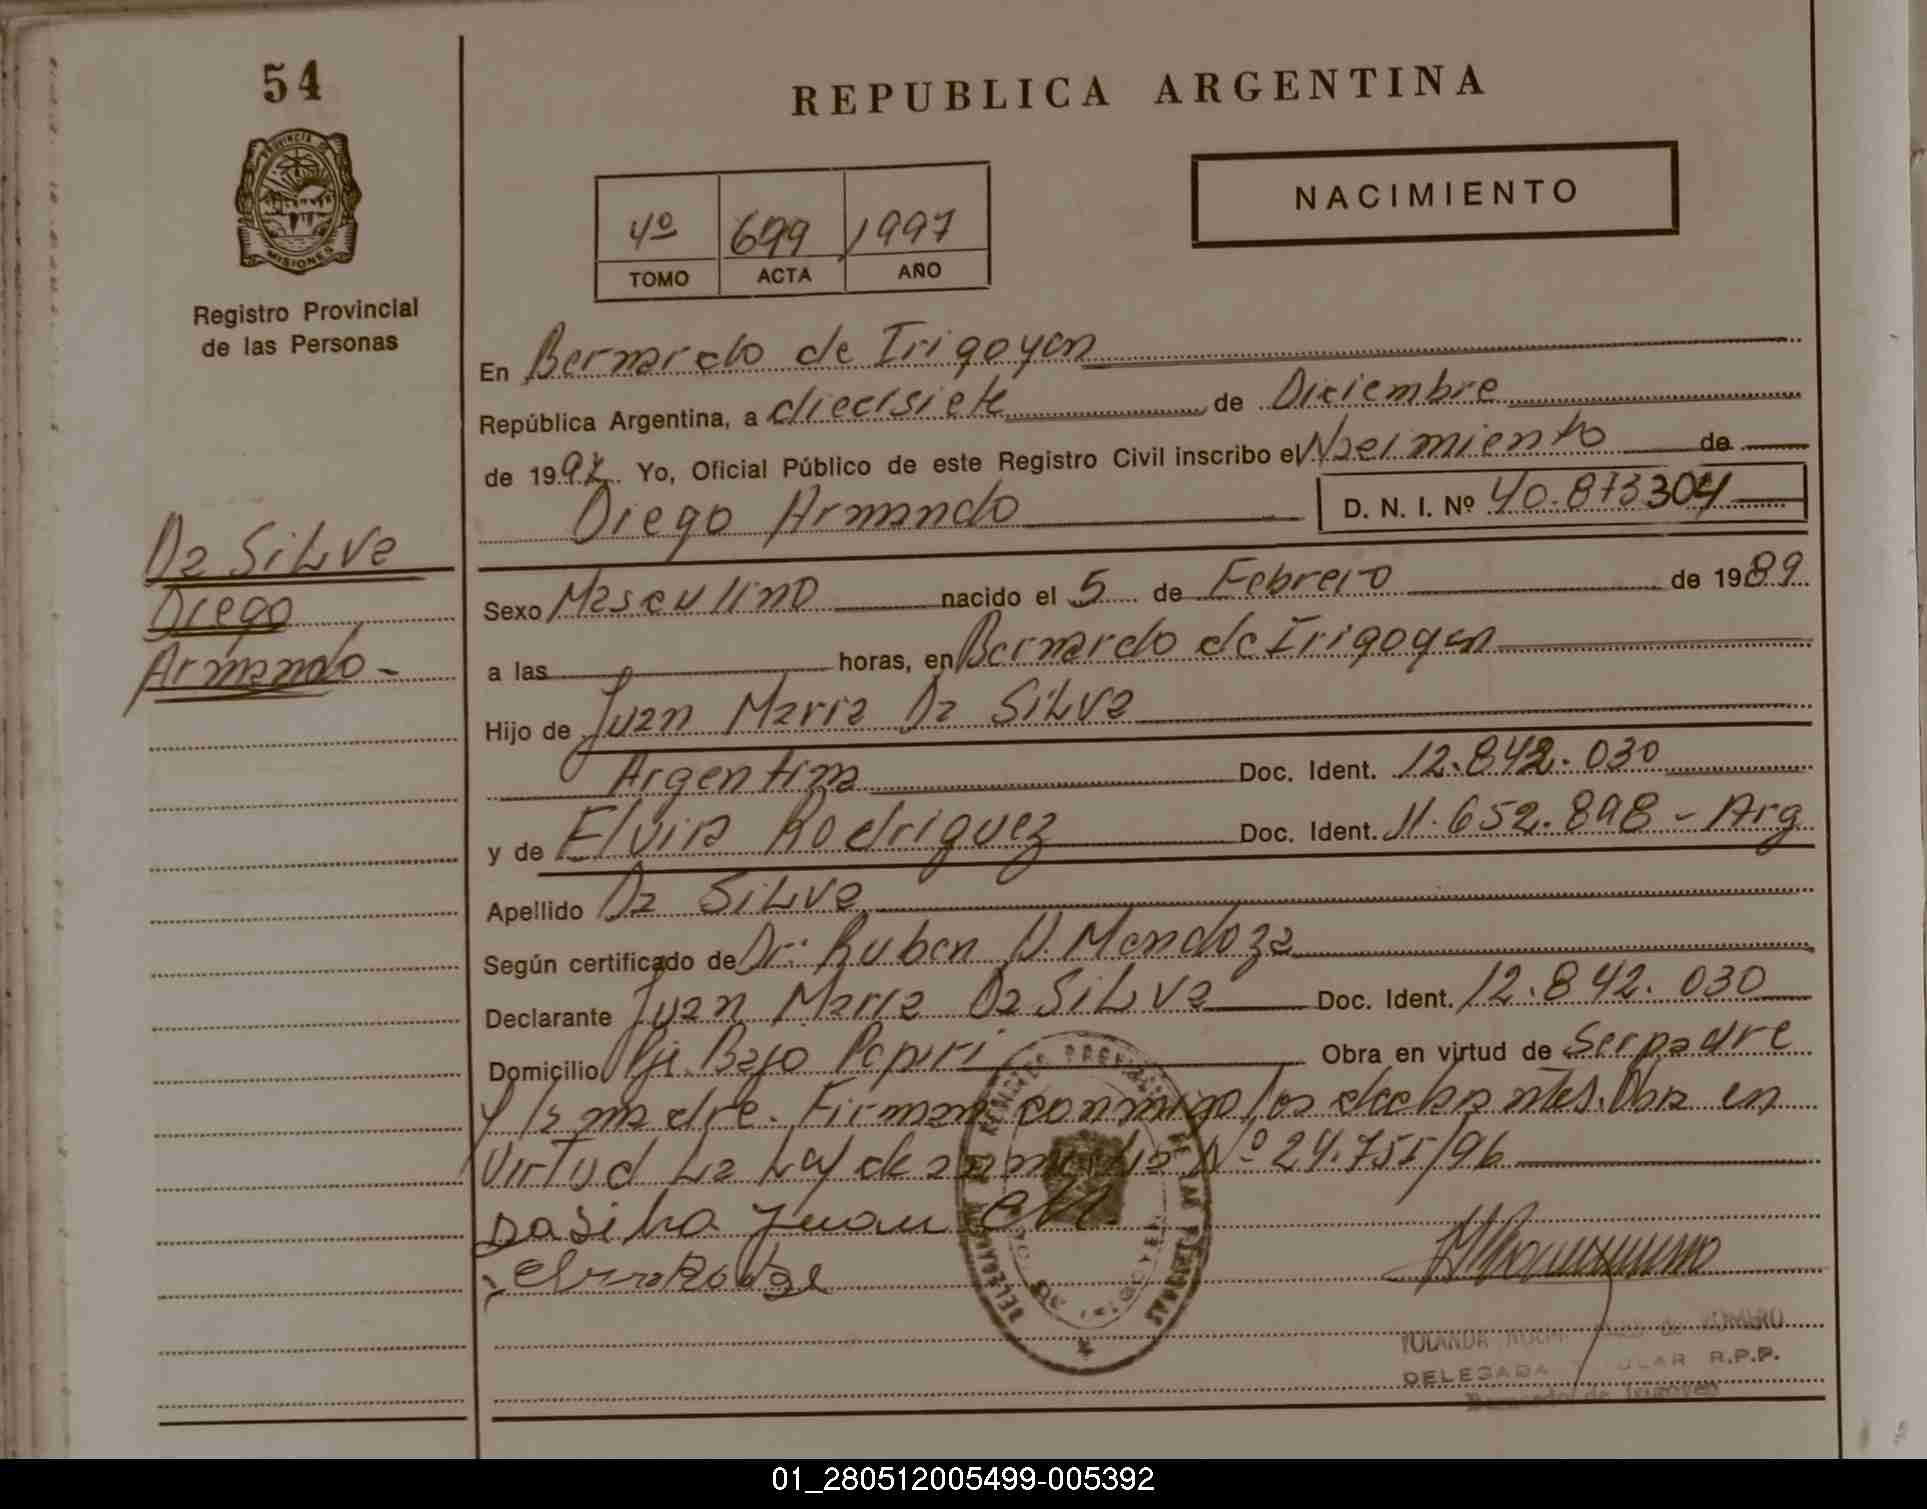 54
REPUBLICA ARGENTINA
PROVINCIA DE
MISIONES
NACIMIENTO
4º 699 1997
TOMO ACTA AÑO
Registro Provincial
de las Personas
En Bernardo de Irigoyen
República Argentina, a diecisiete de Diciembre
de 1997. Yo, Oficial Público de este Registro Civil inscribo el Nacimiento de
Diego Armando D. N. I. Nº 40.873304
Da SiLva
Diego
Armando-
Sexo Masculino nacido el 5 de Febrero de 1989
a las horas, en Bernardo de Irigoyen
Hijo de Juan Maria Da SiLva
Argentina Doc. Ident. 12.842.030
y de Elvira Rodriguez Doc. Ident. 11.652.898 - Arg
Apellido Da SiLva
Según certificado de Dr: Ruben D. Mendoza
Declarante Juan Maria Da SiLva Doc. Ident. 12.842.030
Domicilio Pje. Bajo Pepiri Obra en virtud de Ser padre
y la madre. Firman conmigo los declarantes. Obra en
virtud La Ley de amnistia Nº 24.755/96
Dasilva Juan
DELEGADA R.P.P.
Bernardo de Irigoyen
01_280512005499-005392